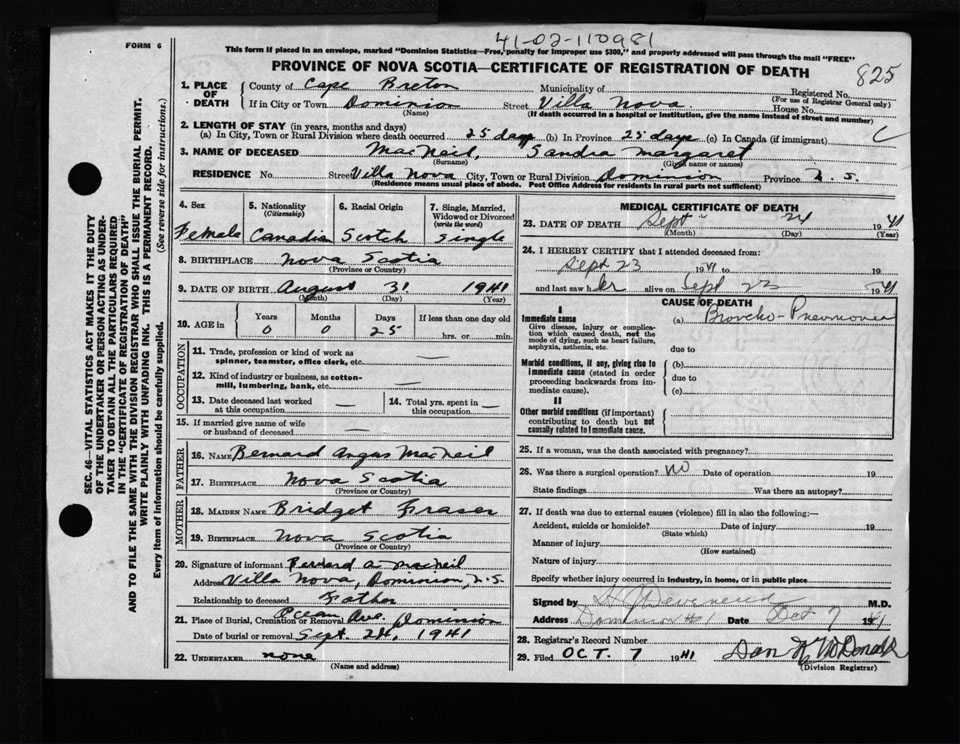 41-02-110981
FORM 6
This form if placed in an envelope, marked "Dominion Statistics—Free, penalty for improper use $300," and properly addressed will pass through the mail "FREE"
PROVINCE OF NOVA SCOTIA—CERTIFICATE OF REGISTRATION OF DEATH
825
1. PLACE OF DEATH County of Cape Breton Municipality of Registered No.
(For use of Registrar General only)
If in City or Town Dominion Street Villa Nova. House No.
(Name) (If death occurred in a hospital or institution, give the name instead of street and number)
2. LENGTH OF STAY (in years, months and days)
(a) In City, Town or Rural Division where death occurred 25 days (b) In Province 25 days (c) In Canada (if immigrant)
C
3. NAME OF DECEASED MacNeil, Sandra Margaret
(Surname) (Given name or names)
RESIDENCE No. Street Villa Nova City, Town or Rural Division Dominion Province N.S.
(Residence means usual place of abode. Post Office Address for residents in rural parts not sufficient)
4. Sex Female
5. Nationality (Citizenship) Canadian
6. Racial Origin Scotch
7. Single, Married, Widowed or Divorced (write the word) Single
8. BIRTHPLACE Nova Scotia
(Province or Country)
9. DATE OF BIRTH August 31 1941
(Month) (Day) (Year)
10. AGE in Years Months Days If less than one day old
0 0 25 hrs. or min.
OCCUPATION
11. Trade, profession or kind of work as spinner, teamster, office clerk, etc. —
12. Kind of industry or business, as cotton-mill, lumbering, bank, etc. —
13. Date deceased last worked at this occupation — 14. Total yrs. spent in this occupation —
15. If married give name of wife or husband of deceased —
FATHER
16. NAME Bernard Angus MacNeil
17. BIRTHPLACE Nova Scotia
(Province or Country)
MOTHER
18. MAIDEN NAME Bridget Fraser
19. BIRTHPLACE Nova Scotia
(Province or Country)
20. Signature of informant Bernard A. MacNeil
Address Villa Nova, Dominion, N.S.
Relationship to deceased Father
21. Place of Burial, Cremation or Removal Ocean Ave. Dominion
Date of burial or removal Sept. 24, 1941
22. UNDERTAKER none
(Name and address)
MEDICAL CERTIFICATE OF DEATH
23. DATE OF DEATH Sept 24 1941
(Month) (Day) (Year)
24. I HEREBY CERTIFY that I attended deceased from:
Sept 23 1941 to 19
and last saw her alive on Sept 23 1941
CAUSE OF DEATH
Immediate cause (a) Broncho-Pneumonia
Give disease, injury or complication which caused death, not the mode of dying, such as heart failure, asphyxia, asthenia, etc.
due to
Morbid conditions, if any, giving rise to immediate cause (stated in order proceeding backwards from immediate cause).
(b)
due to
(c)
II
Other morbid conditions (if important) contributing to death but not causally related to immediate cause.
25. If a woman, was the death associated with pregnancy?
26. Was there a surgical operation? no Date of operation 19
State findings Was there an autopsy?
27. If death was due to external causes (violence) fill in also the following:—
Accident, suicide or homicide? Date of injury 19
(State which)
Manner of injury
(How sustained)
Nature of injury
Specify whether injury occurred in industry, in home, or in public place
Signed by M.D.
Address Dominion #1 Date Oct 7 1941
28. Registrar's Record Number
29. Filed OCT. 7 1941 Dan McDonald
(Division Registrar)
SEC. 46—VITAL STATISTICS ACT MAKES IT THE DUTY
OF THE UNDERTAKER OR PERSON ACTING AS UNDER-
TAKER TO OBTAIN ALL THE PARTICULARS REQUIRED
IN THE "CERTIFICATE OF REGISTRATION OF DEATH"
AND TO FILE THE SAME WITH THE DIVISION REGISTRAR WHO SHALL ISSUE THE BURIAL PERMIT.
WRITE PLAINLY WITH UNFADING INK. THIS IS A PERMANENT RECORD.
Every item of information should be carefully supplied. (See reverse side for instructions.)